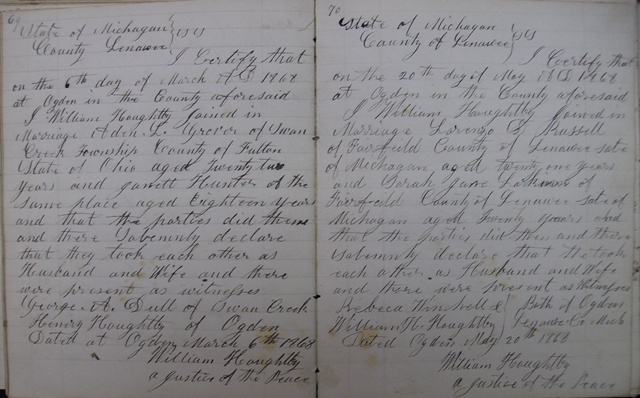 69
State of Michagan } SS
County Lenawee
I Certify that
on the 6th day of March AD 1868
at Ogden in the County aforesaid
I William Houghtby joined in
Marriage Alden L. Grover of Swan
Creek Township County of Fulton
State of Ohio aged Twenty two
Years and Hunter of the
Same place aged Eighteen Years
and that the parties did then
and there Solemnly declare
that they took each other as
Husband and Wife and there
were present as witnesses
George A. Dull of Swan Creek
Henry Houghtby of Ogden
Dated at Ogden March 6th 1868
William Houghtby
a Justice of the Peace
70
State of Michagan } SS
County of Lenawee
I Certify that
on the 20th day of May AD 1868
at Ogden in the County aforesaid
I William Houghtby joined in
Marriage Lorenzo D Russell
of Fairfield County of Lenawee sate
of Michagan aged twenty one years
and Sarah Jane of
Fairfield County of Lenawee sate of
Michagan aged Twenty Years and
that the parties did then and there
solemnly declare that the took
each other as Husband and Wife
and there were present as Witnesses
Rebeca } Both of Ogden
William H. Houghtby } Lenawee Co Mich
Dated Ogden May 20th 1868
William Houghtby
a Justice of the Peace